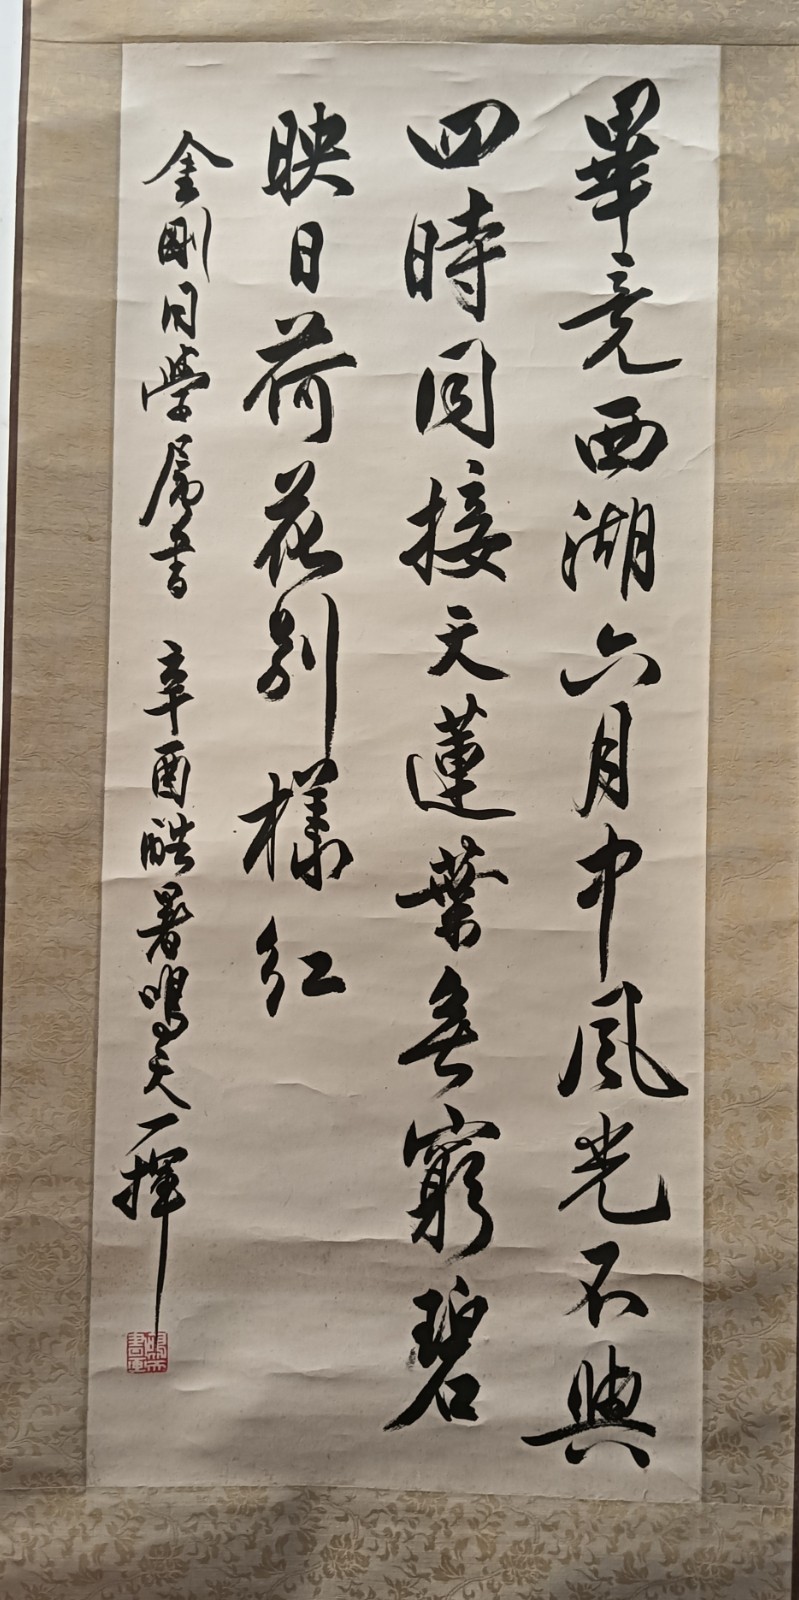 畢竟西湖六月中風光不與
四時同接天蓮葉無窮碧
映日荷花别樣紅
金剛同學屬書 辛酉酷暑鳴天一揮